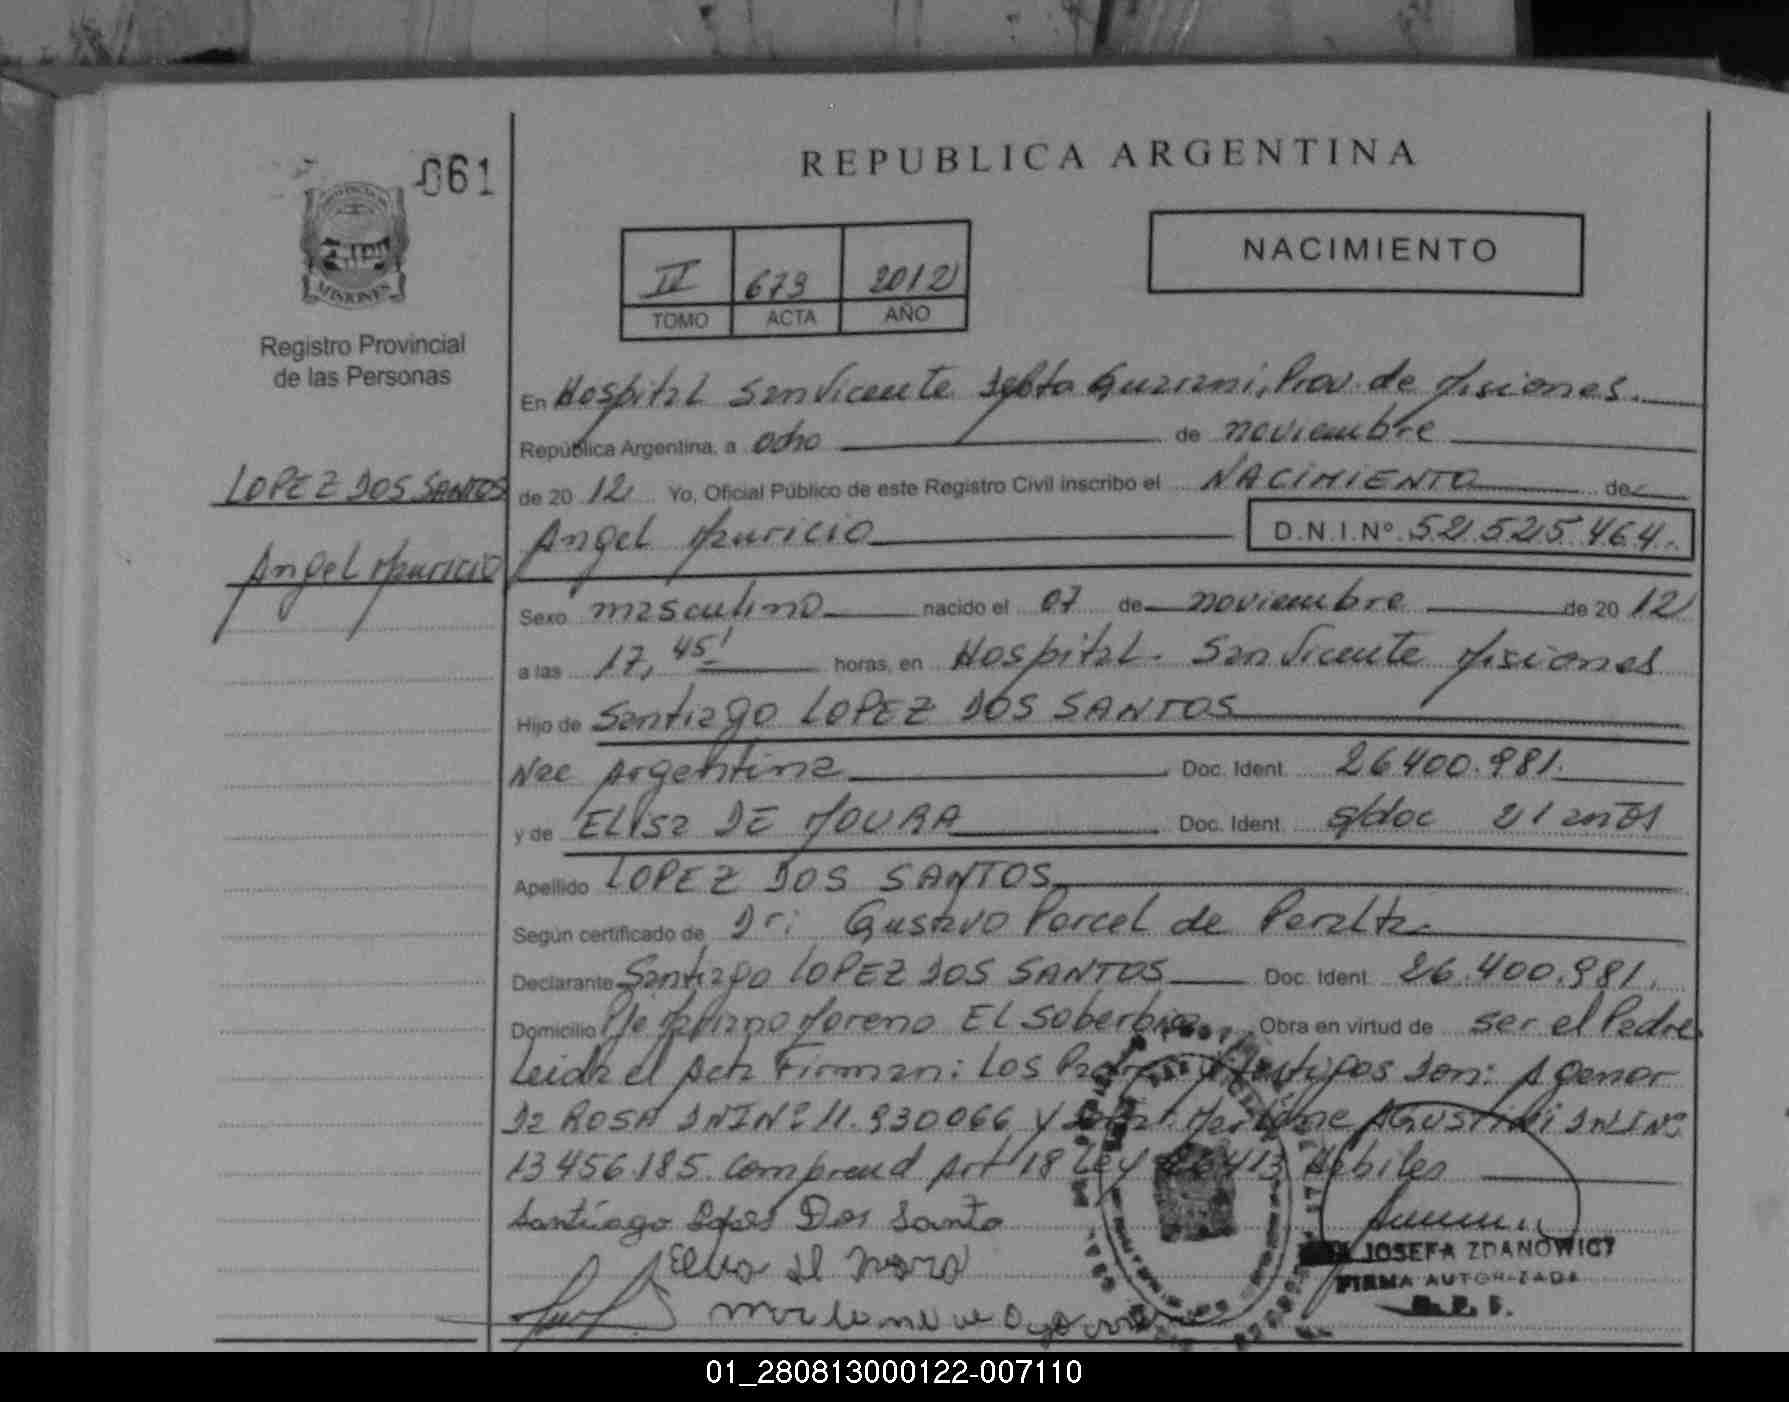 061
REPUBLICA ARGENTINA
NACIMIENTO
II 673 2012
TOMO ACTA AÑO
MISIONES
Registro Provincial
de las Personas
En Hospital San Vicente Guarani, Prov. de Misiones.
República Argentina, a ocho de noviembre
LOPEZ DOS SANTOS
de 20 12 Yo, Oficial Público de este Registro Civil inscribo el NACIMIENTO de
Angel Mauricio
Angel Mauricio D.N.I.Nº 52.525.464.
Sexo masculino nacido el 07 de noviembre de 20 12
a las 17,45' horas, en Hospital. San Vicente Misiones
Hijo de Santiago LOPEZ DOS SANTOS
Nac Argentina Doc. Ident. 26.400.981.
y de ELISA DE MOURA Doc. Ident. s/doc 21 años
Apellido LOPEZ DOS SANTOS
Según certificado de Dr: Gustavo Porcel de Peralta
Declarante Santiago LOPEZ DOS SANTOS Doc. Ident. 26.400.981.
Domicilio Moreno EL Soberbio Obra en virtud de ser el Padre
Leida el Acta Firman: Los testigos Don: Agenor
Da ROSA DNINº 11.930066 y AGUSTINI DNINº
13456.185. Comprend Art 18 Ley 26413 Habiles
Santiago Lopes Dos Santo
JOSEFA ZDANOWICZ
FIRMA AUTORIZADA
R. P. P.
01_280813000122-007110